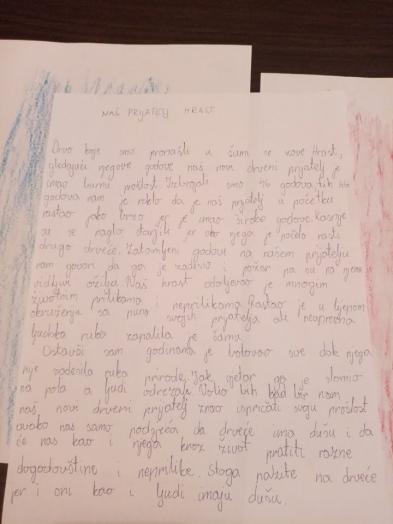 NAŠ PRIJATELJ HRAST
Drvo koje smo pronašli u šumi se zove Hrast,
gledajući njegove godove naš novi drveni prijatelj je
imao burnu prošlost. Izbrojali smo 46 godova, tih 46
godova nam je reklo da je naš prijatelj u početku
rastao jako brzo jer je imao široke godove. Kasnije
su se naglo jer oko njega je počelo rasti
drugo drveće. Zatamljeni godovi na našem prijatelju
nam govori da ga je zadesio i požar pa su na njemu
vidljivi ožiljci. Naš hrast odoljevao je mnogim
životnim prilikama i neprilikama. Rastao je u lijepom
okruženju sa puno svojih prijatelja ali neoprezna
ljudska ruka zapalila je šumu.
Ostavši sam godinama je bolovao sve dok njega
nije ruka prirode. Jak vjetar ga je slomio
na pola a ljudi odrezali. Volio bih kad bi nam
naš novi drveni prijatelj znao ispričati svoju prošlost
ovako nas samo podsjeća da drveće ima dušu i da
će nas kao i njega kroz život pratiti razne
dogodovštine i neprilike. Stoga pazite na drveće
jer i oni kao i ljudi imaju dušu.